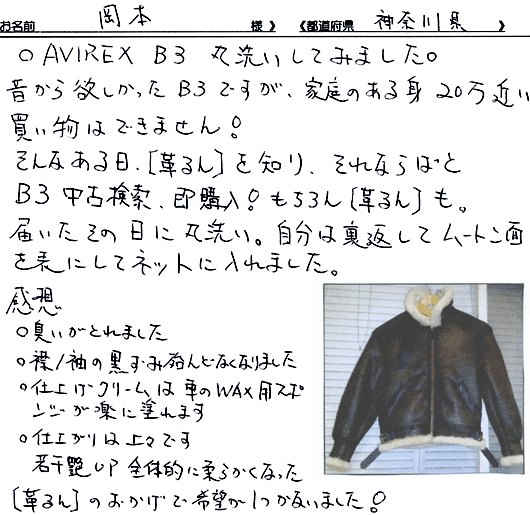 お名前 岡本 様 》 《都道府県 神奈川県 》
○ AVIREX B3 丸洗いしてみました。
昔から欲しかったB3ですが、家庭のある身 20万近い
買い物はできません!
そんなある日、[革るん]を知り、それならばと
B3 中古検索、即購入!もちろん[革るん]も。
届いたその日に丸洗い。自分は裏返してムートン面
を表にしてネットに入れました。
感想
○臭いがとれました
○襟/袖の黒ずみ殆んどなくなりました
○仕上げクリームは車のWAX用スポ
ンジが楽に塗れます
○仕上がりは上々です
若干艶UP 全体的に柔らかくなった
[革るん]のおかげで希望が1つかないました!